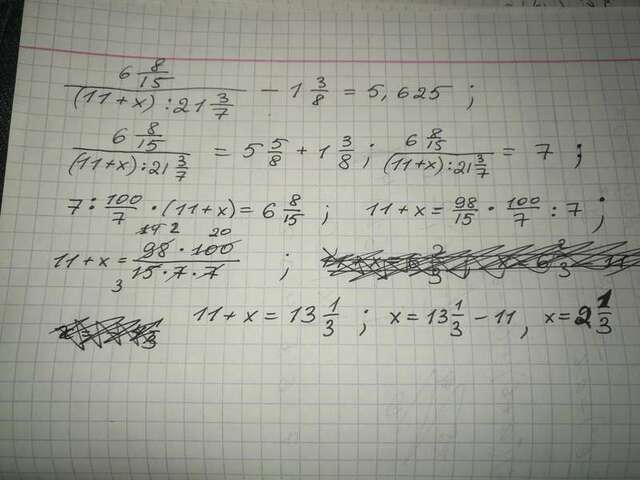 6 8/15 / (11+x) : 21 3/7 − 1 3/8 = 5,625 ;
6 8/15 / (11+x) : 21 3/7 = 5 5/8 + 1 3/8 ; 6 8/15 / (11+x) : 21 3/7 = 7 ;
7 : 100/7 · (11+x) = 6 8/15 ; 11+x = 98/15 · 100/7 : 7 ;
14 2 20
11+x = 98 · 100 / 15 · 7 · 7 ;
3
11+x = 13 1/3 ; x = 13 1/3 − 11 , x = 2 1/3